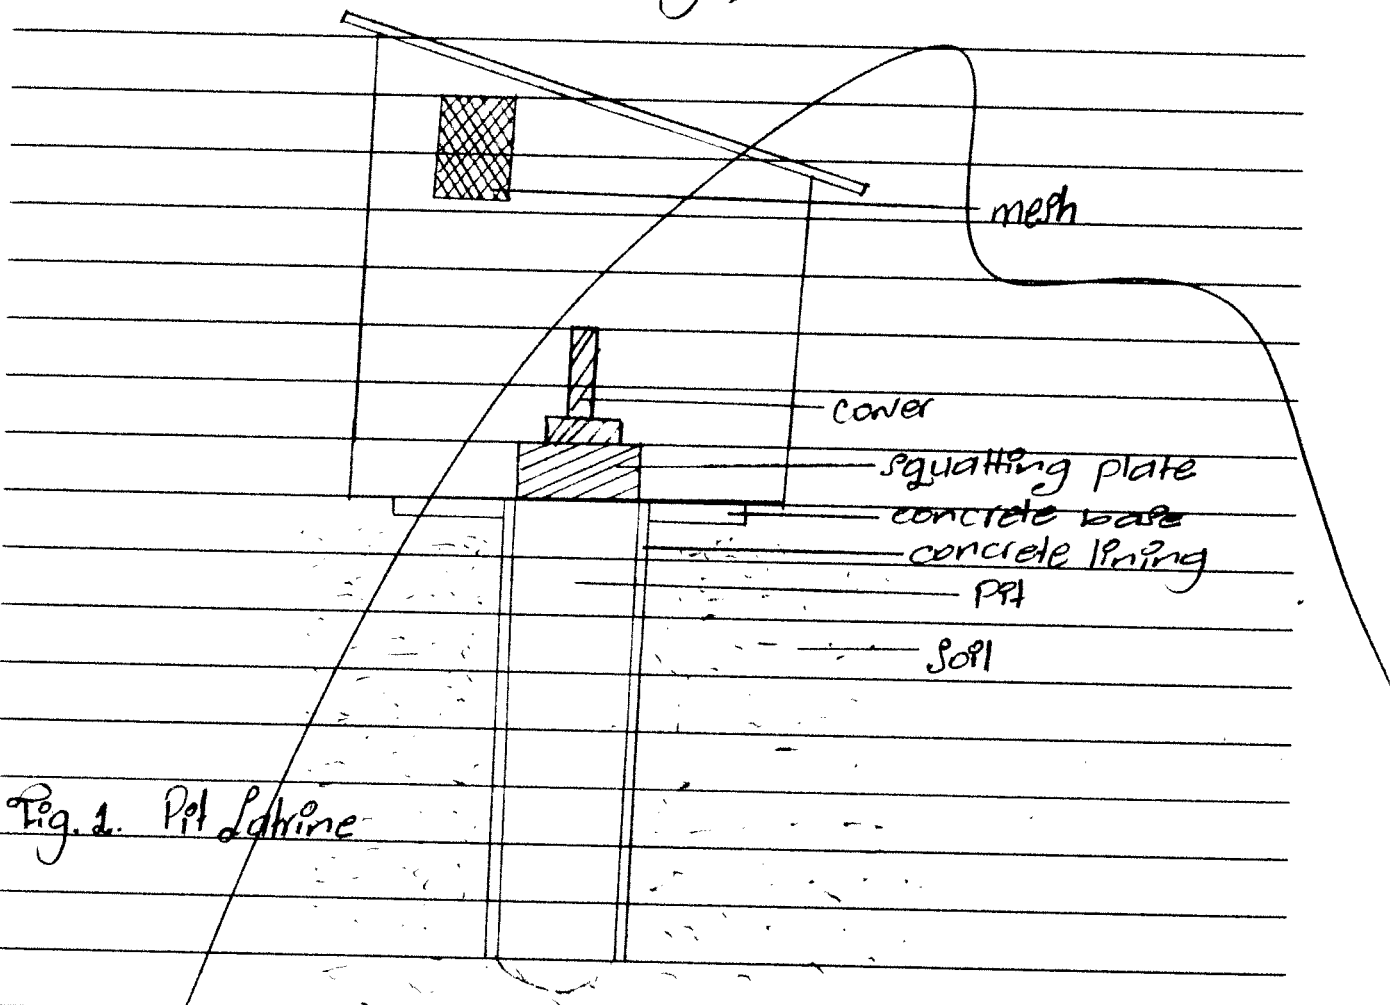 mesh
cover
squatting plate
concrete base
concrete lining
Pit
Soil
Fig. 1. Pit Latrine